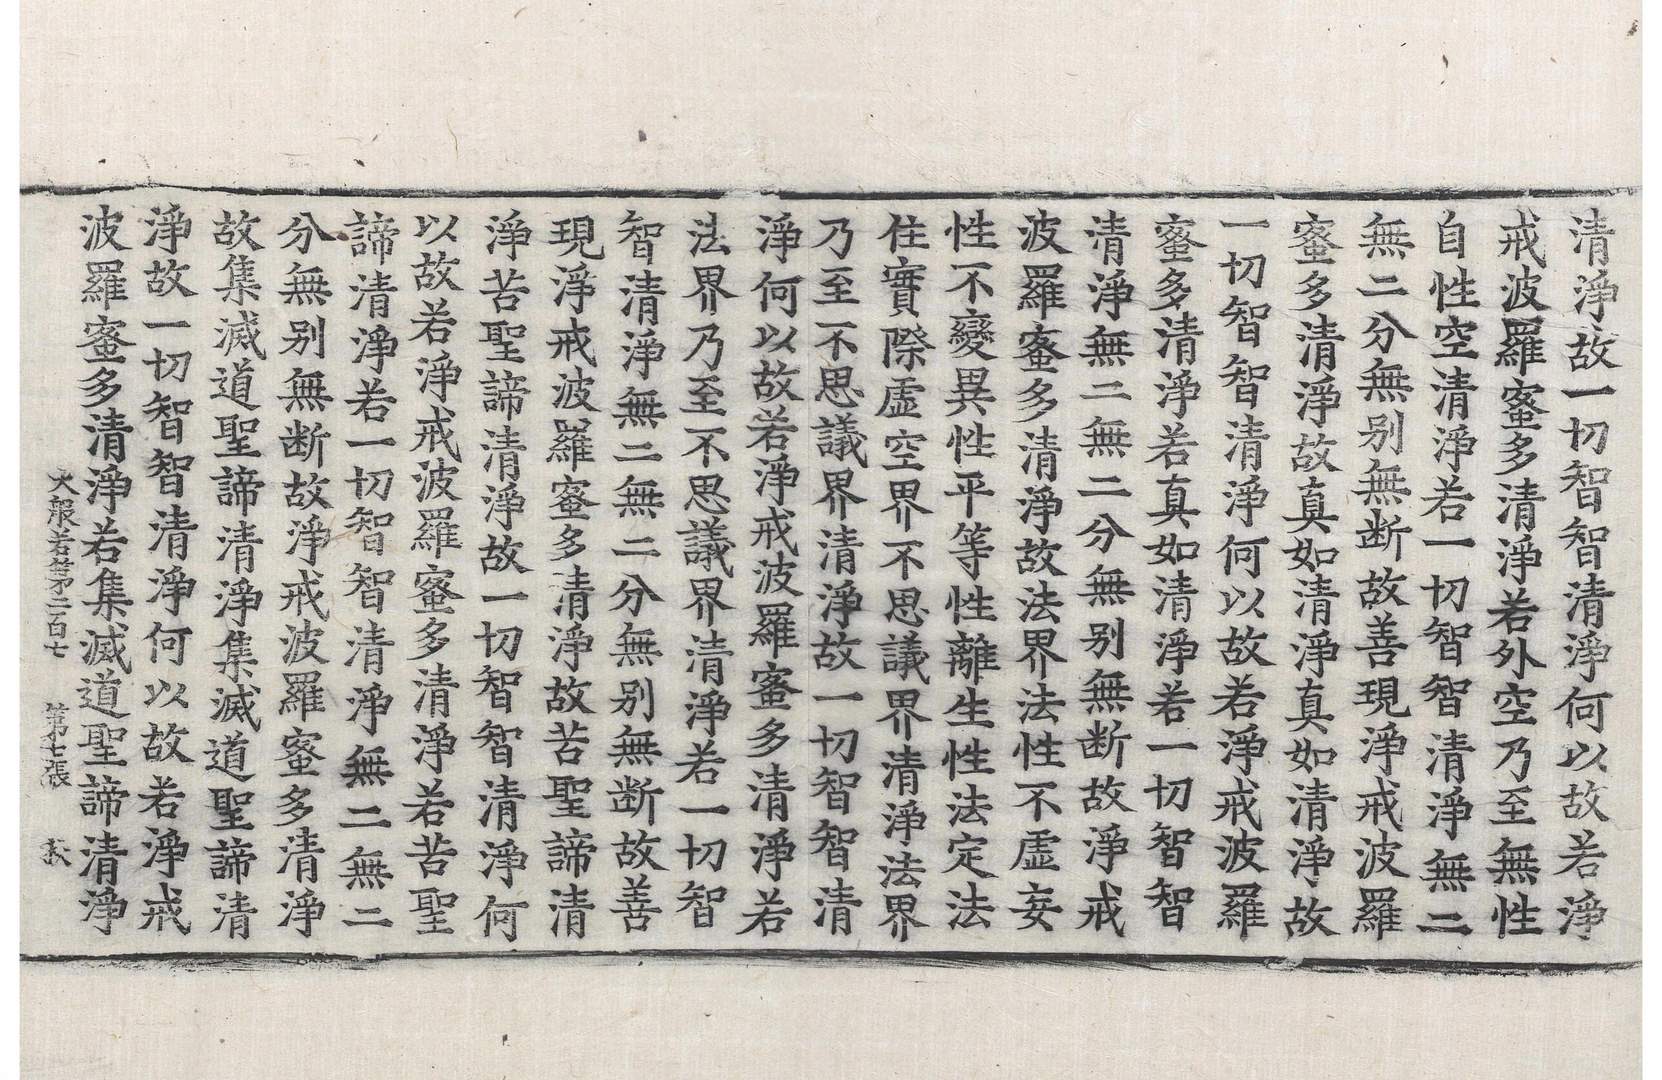 清淨故一切智智清淨何以故若淨
戒波羅蜜多清淨若外空乃至無性
自性空清淨若一切智智清淨無二
無二分無别無断故善現淨戒波羅
蜜多清淨故真如清淨真如清淨故
一切智智清淨何以故若淨戒波羅
蜜多清淨若真如清淨若一切智智
清淨無二無二分無别無断故淨戒
波羅蜜多清淨故法界法性不虛妄
性不變異性平等性離生性法定法
住實際虛空界不思議界清淨法界
乃至不思議界清淨故一切智智清
淨何以故若淨戒波羅蜜多清淨若
法界乃至不思議界清淨若一切智
智清淨無二無二分無别無断故善
現淨戒波羅蜜多清淨故苦聖諦清
淨苦聖諦清淨故一切智智清淨何
以故若淨戒波羅蜜多清淨若苦聖
諦清淨若一切智智清淨無二無二
分無别無断故淨戒波羅蜜多清淨
故集滅道聖諦清淨集滅道聖諦清
淨故一切智智清淨何以故若淨戒
波羅蜜多清淨若集滅道聖諦清淨
大般若第二百七 第七張 秋